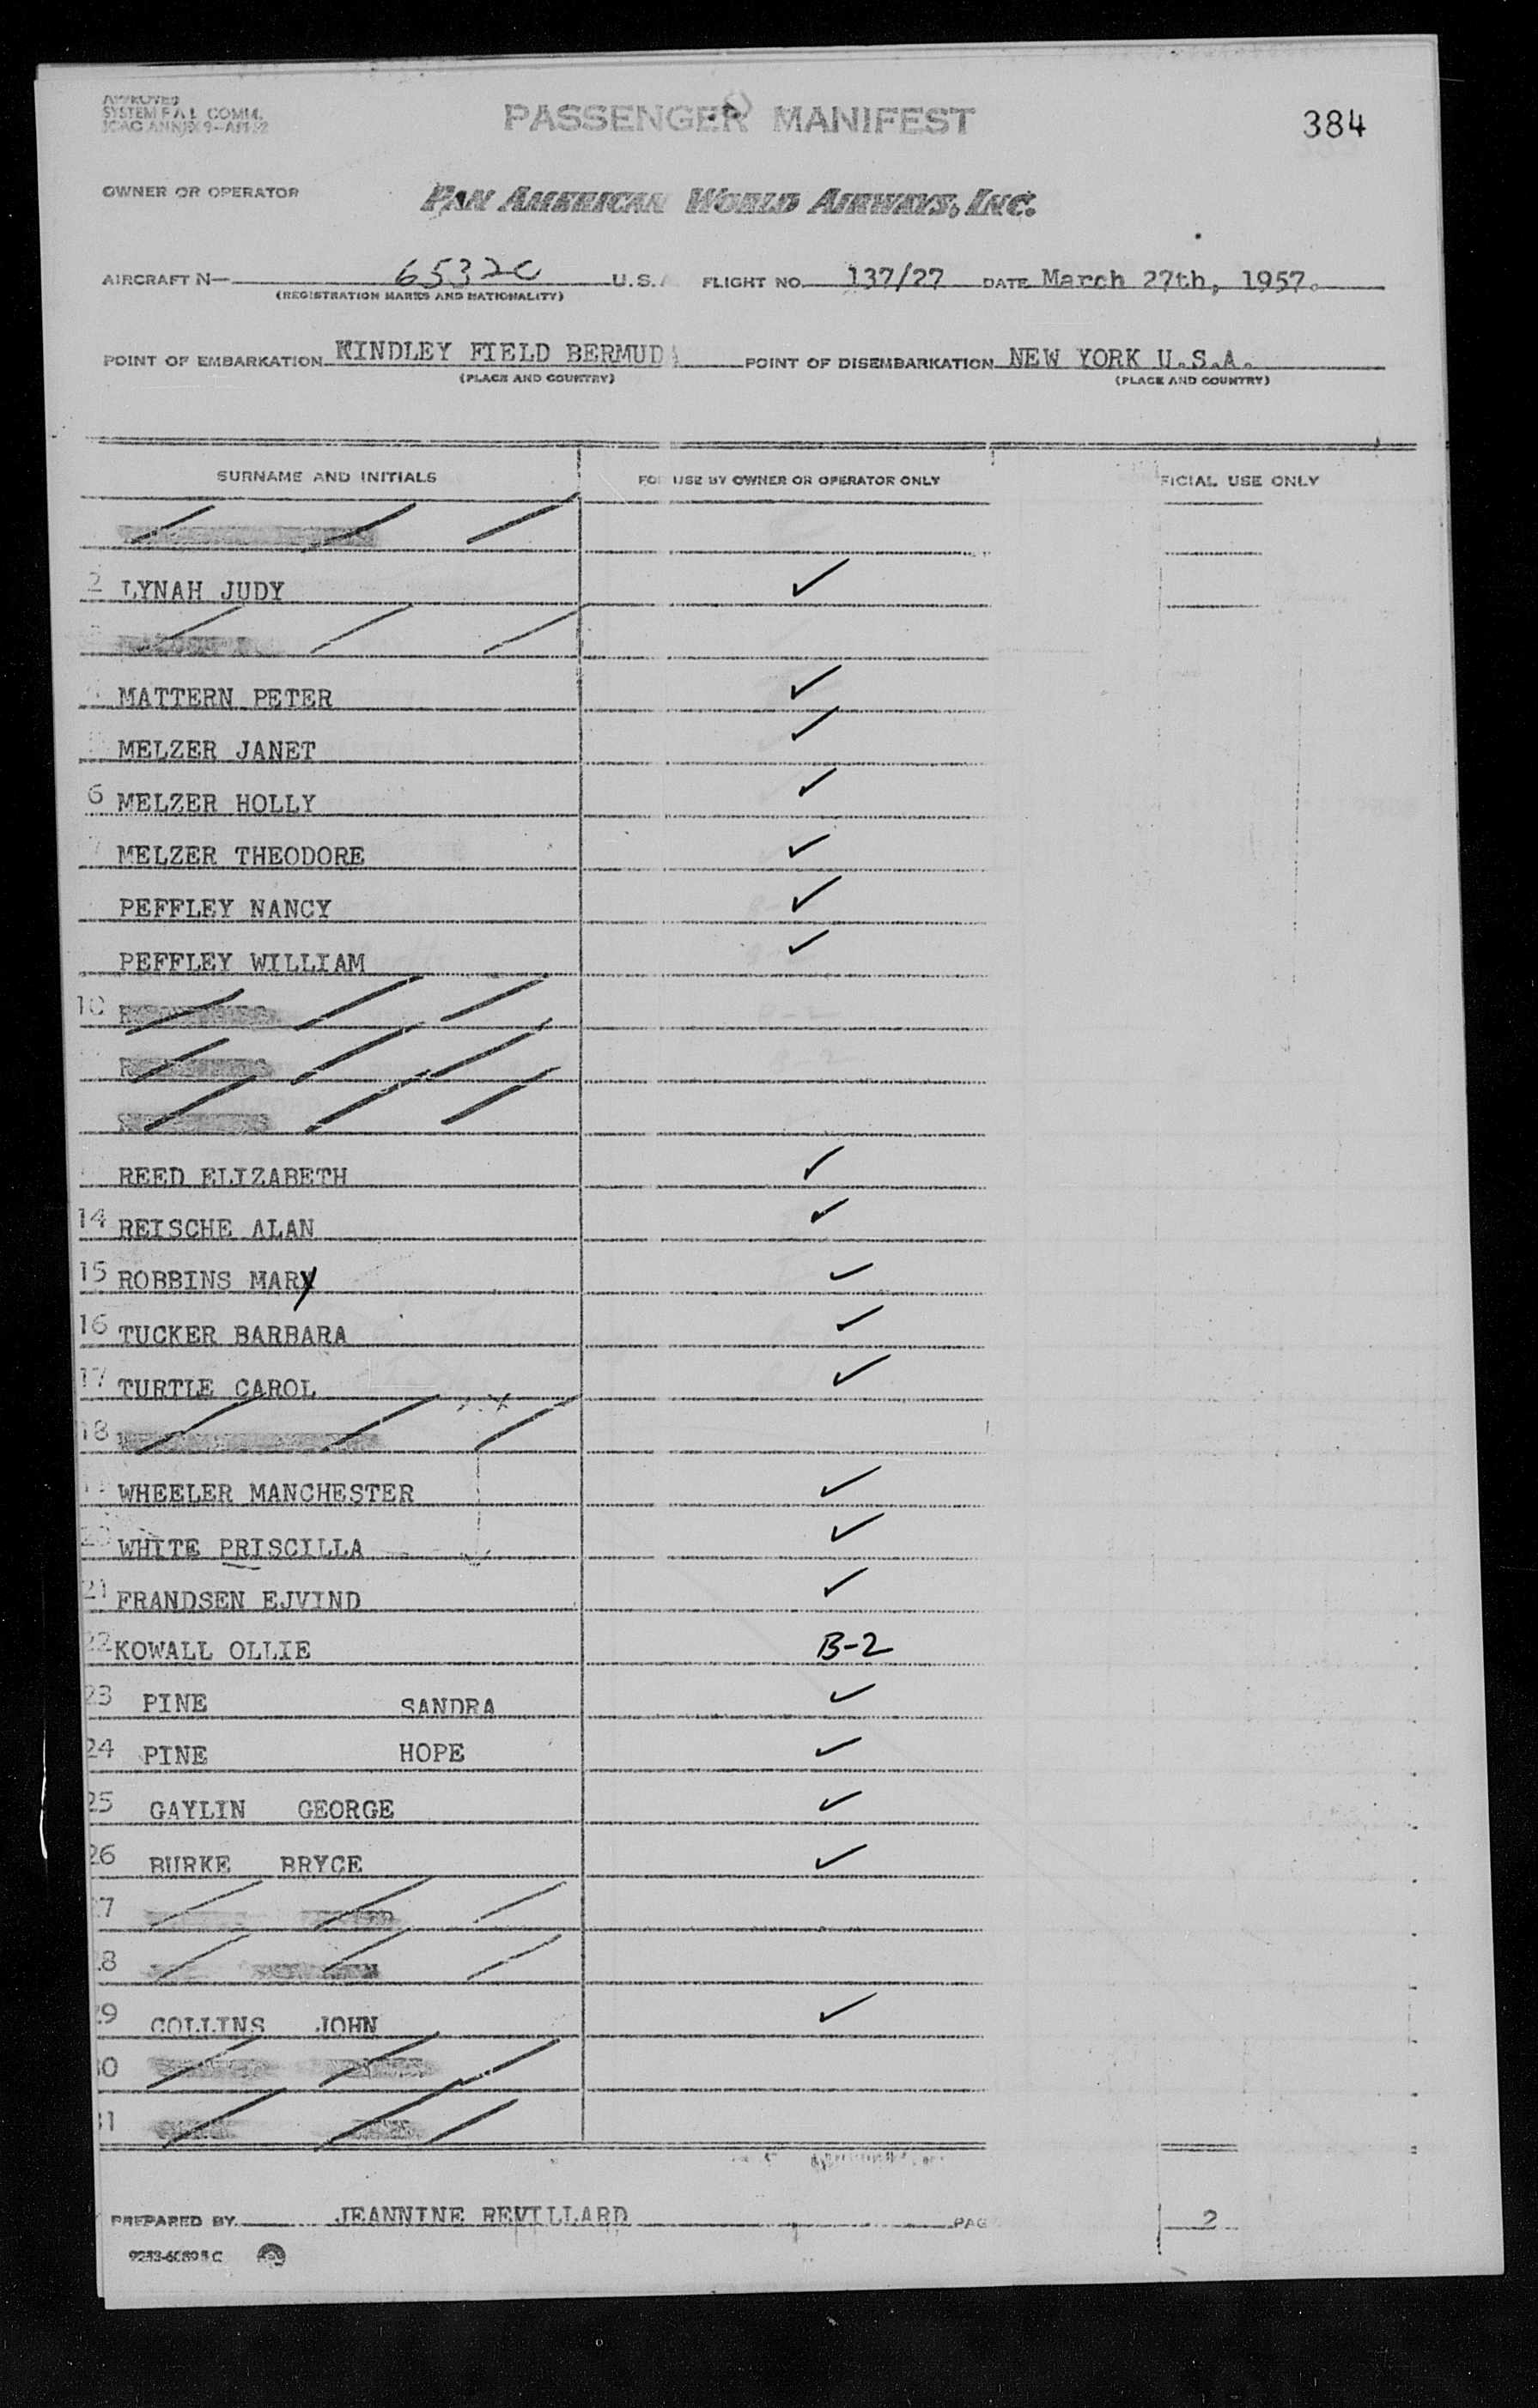 APPROVED
SYSTEM F A L COMM.
ICAO ANNEX 9-APP.
PASSENGER MANIFEST
384
OWNER OR OPERATOR
PAN AMERICAN WORLD AIRWAYS, INC.
AIRCRAFT N— 6532C U.S. FLIGHT NO. 137/27 DATE March 27th, 1957.
(REGISTRATION MARKS AND NATIONALITY)
POINT OF EMBARKATION KINDLEY FIELD BERMUDA POINT OF DISEMBARKATION NEW YORK U.S.A.
(PLACE AND COUNTRY) (PLACE AND COUNTRY)
SURNAME AND INITIALS FOR USE BY OWNER OR OPERATOR ONLY FICIAL USE ONLY
2 LYNAH JUDY ✓
MATTERN PETER ✓
MELZER JANET ✓
6 MELZER HOLLY ✓
7 MELZER THEODORE ✓
PEFFLEY NANCY ✓
PEFFLEY WILLIAM ✓
10
REED ELIZABETH ✓
14 REISCHE ALAN ✓
15 ROBBINS MARY ✓
16 TUCKER BARBARA ✓
17 TURTLE CAROL ✓
18
WHEELER MANCHESTER ✓
20 WHITE PRISCILLA ✓
21 FRANDSEN EJVIND ✓
22 KOWALL OLLIE B-2
23 PINE SANDRA ✓
24 PINE HOPE ✓
25 GAYLIN GEORGE ✓
26 BURKE BRYCE ✓
7
8
29 COLLINS JOHN ✓
0
1
PREPARED BY JEANNINE REVILLARD PAG 2